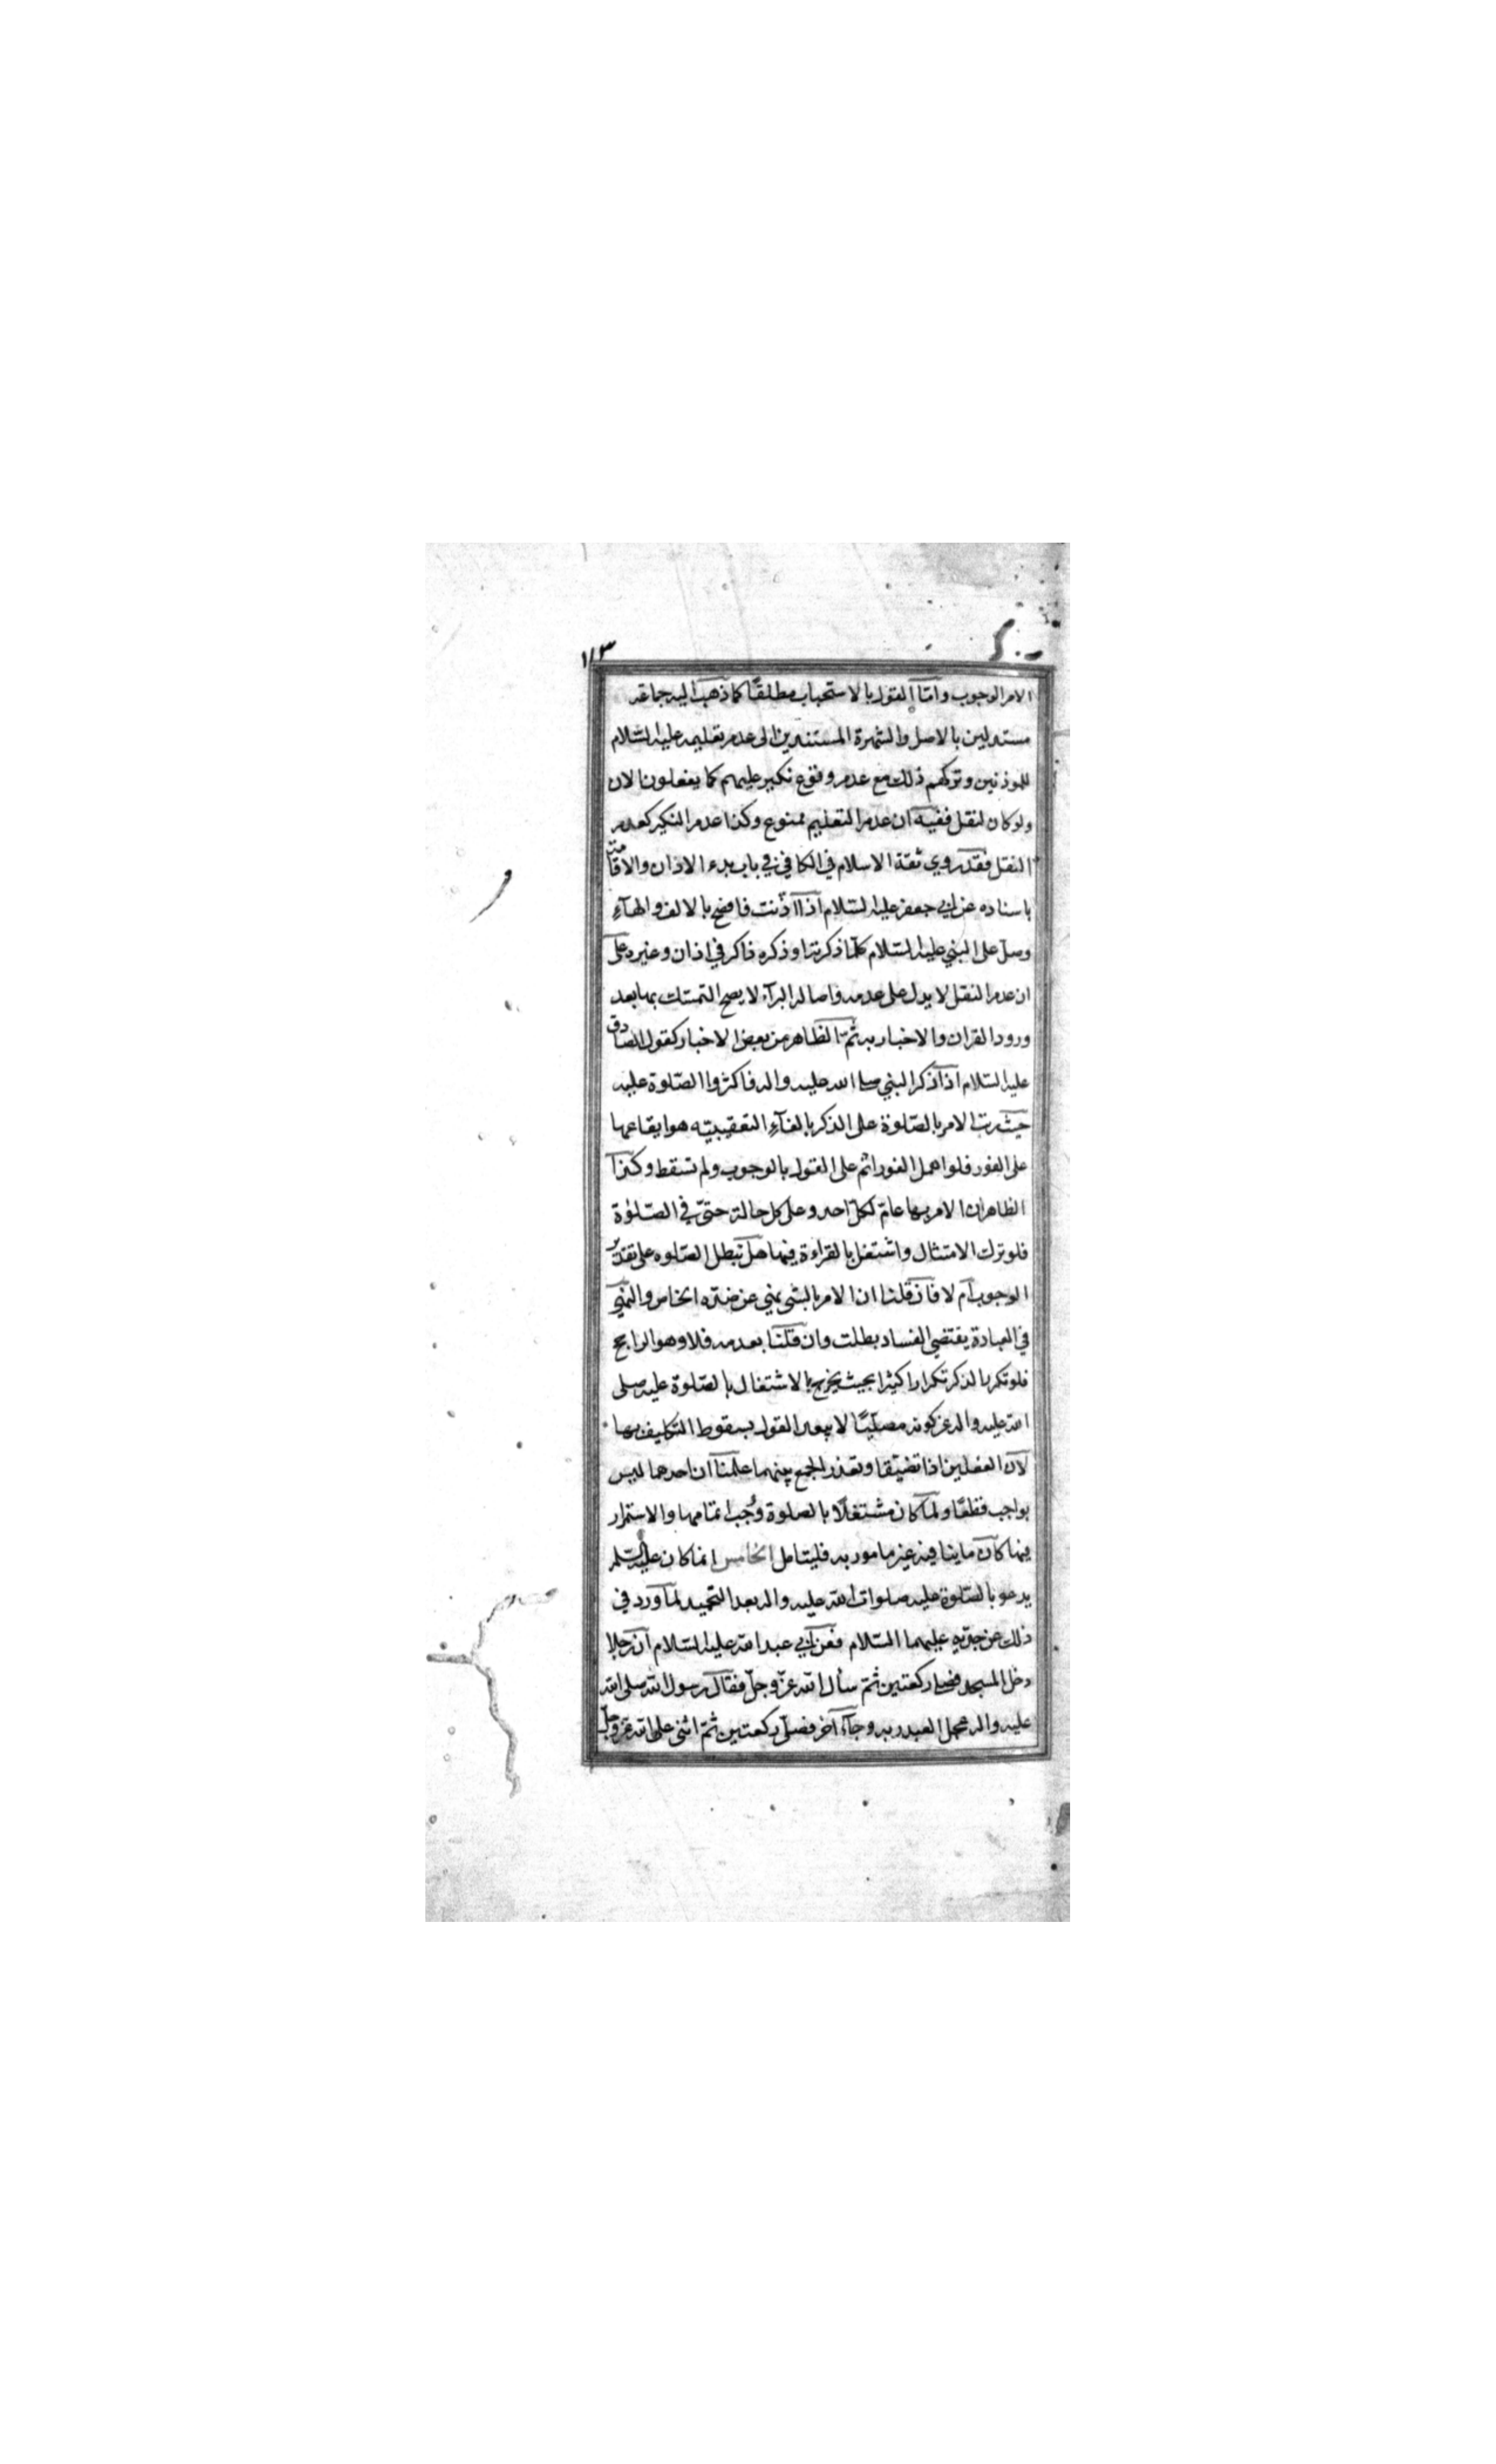 ١١٣
الامر الوجوب وامّا القول بالاستحباب مطلقًا كما ذهب اليه جماعة
مستدلين بالاصل والشهرة المستندين الى عدم تعليمه عليه السّلام
للموذنين وتركهم ذلك مع عدم وقوع نكير عليهم كما يفعلون الان
ولو كان لنقل ففيه ان عدم التعليم ممنوع وكذا عدم النكير كعدم
النقل فقد روي ثقة الاسلام في الكافي في باب بدء الاذان والاقامة
باسناده عن ابي جعفر عليه السّلام اذا اذّنت فافصح بالالف والهآء
وصل على النبي عليه السّلام كلّما ذكرته او ذكره ذاكر في اذان وغيره على
ان عدم النقل لا يدل على عدمه واصالة البرآءة لا يصح التمسّك بها بعد
ورود القران والاخبار به ثمّ الظاهر من بعض الاخبار كقول الصادق
عليه السّلام اذا ذكر النبي صلى الله عليه واله فاكثروا الصّلوة عليه
حيث رتب الامر بالصّلوة على الذكر بالفآء التعقيبيّه هو ايقاعها
على الفور فلو اهمل الفور اثم على القول بالوجوب ولم تسقط وكذا
الظاهر ان الامر بها عامّ لكلّ احد وعلى كل حالة حتّى في الصّلوة
فلو ترك الامتثال واشتغل بالقراءة فيها هل تبطل الصّلوه على تقدير
الوجوب ام لا فان قلنا ان الامر بالشئ نهي عن ضدّه الخاص والنهي
في العبادة يقتضي الفساد بطلت وان قلنا بعدمه فلا وهو الراجح
فلو تكرر الذكر تكرارا كثيرا بحيث يخرج بالاشتغال بالصّلوة عليه صلى
الله عليه واله عن كونه مصلّيًا لا يبعد القول بسقوط التكليف بها
لان الفعلين اذا تضيّقا وتعذر الجمع بينهما علمنا ان احدهما ليس
بواجب قطعًا ولما كان مشتغلًا بالصلوة وجب اتمامها والاستمرار
فيها كان ما ينافيه غير مامور به فليتامل الخامس انما كان عليه السّلم
يدعو بالصّلوة عليه صلوات الله عليه واله بعد التحميد لما ورد في
ذلك عن جدّيه عليهما السّلام فعن ابي عبد الله عليه السّلام ان رجلا
دخل المسجد فصلى ركعتين ثمّ سأل الله عزّ وجلّ فقال رسول الله صلى الله
عليه واله عجل العبد ربه وجآء آخر فصلّى ركعتين ثمّ اثنى على الله عز وجلّ